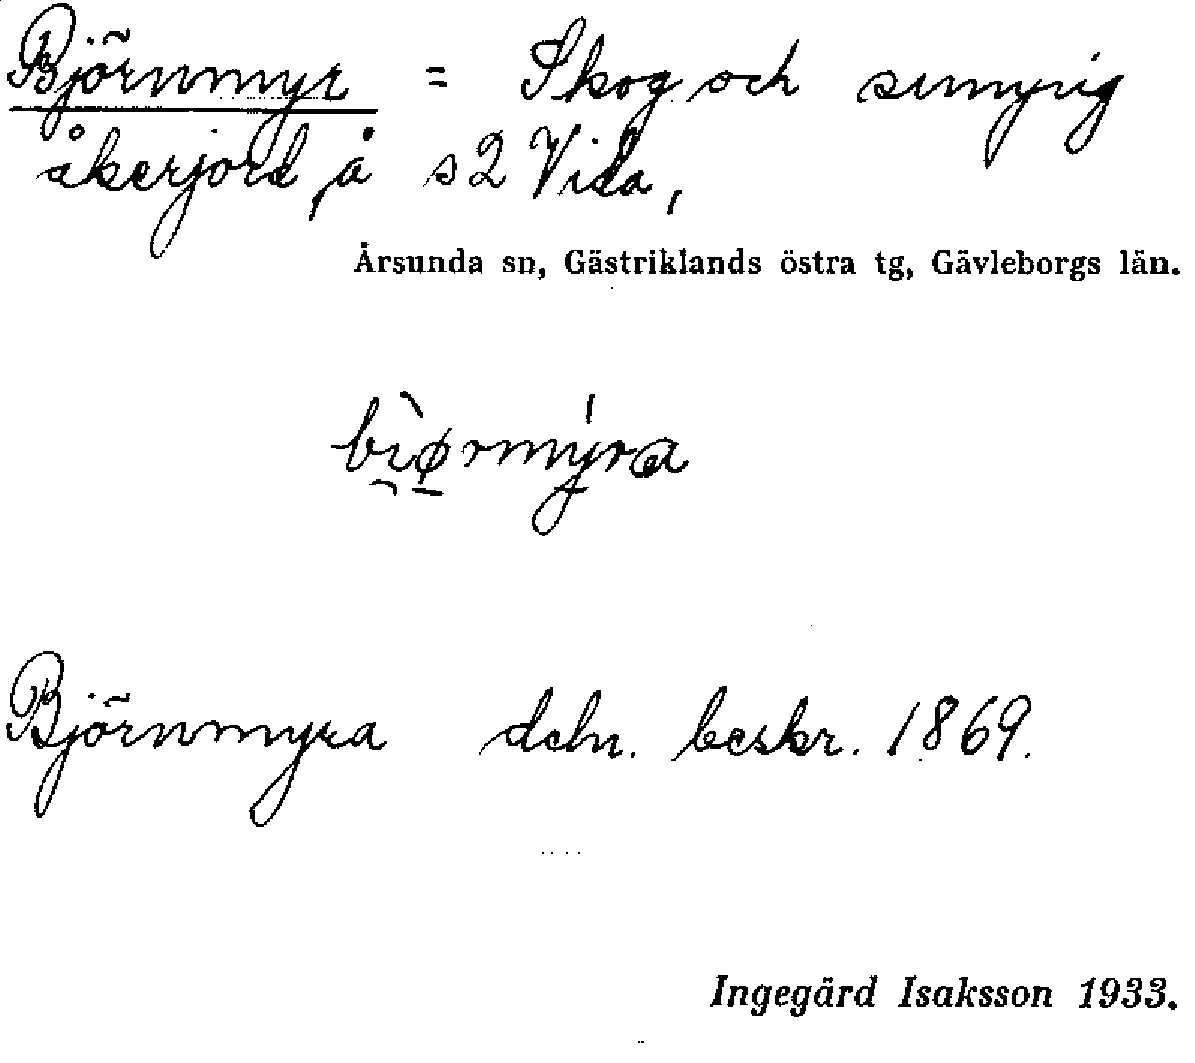 Björnmyr = Skog och sumyrig
åkerjord, å s2 Vida,
Årsunda sn, Gästriklands östra tg, Gävleborgs län.
Björnmyra deln. beskr. 1869.
Ingegärd Isaksson 1933.